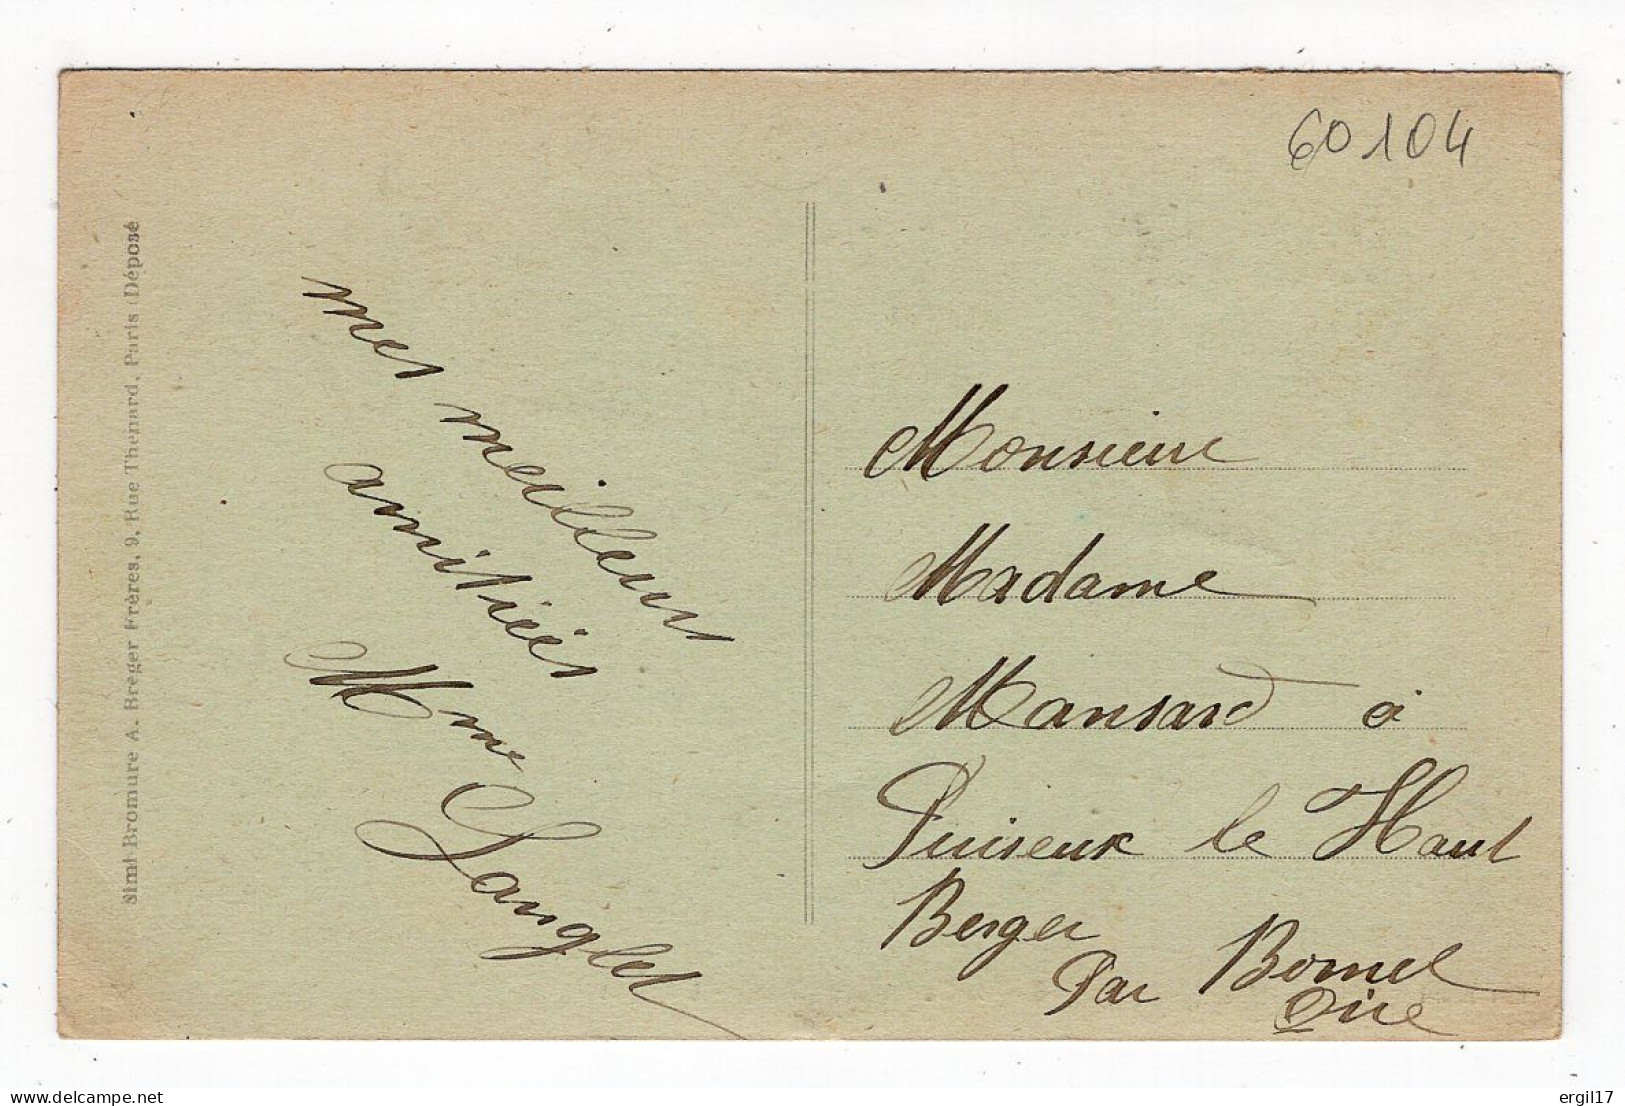 60104
Simi-Bromure A. Breger Frères, 9, Rue Thenard, Paris (Déposé
mes meilleurs
amitiées
Mme Langlet
Monsieur
Madame
Mansard à
Puiseux le Haut
Berger
Par Bornel
Oise
delcampe.net
ergil17